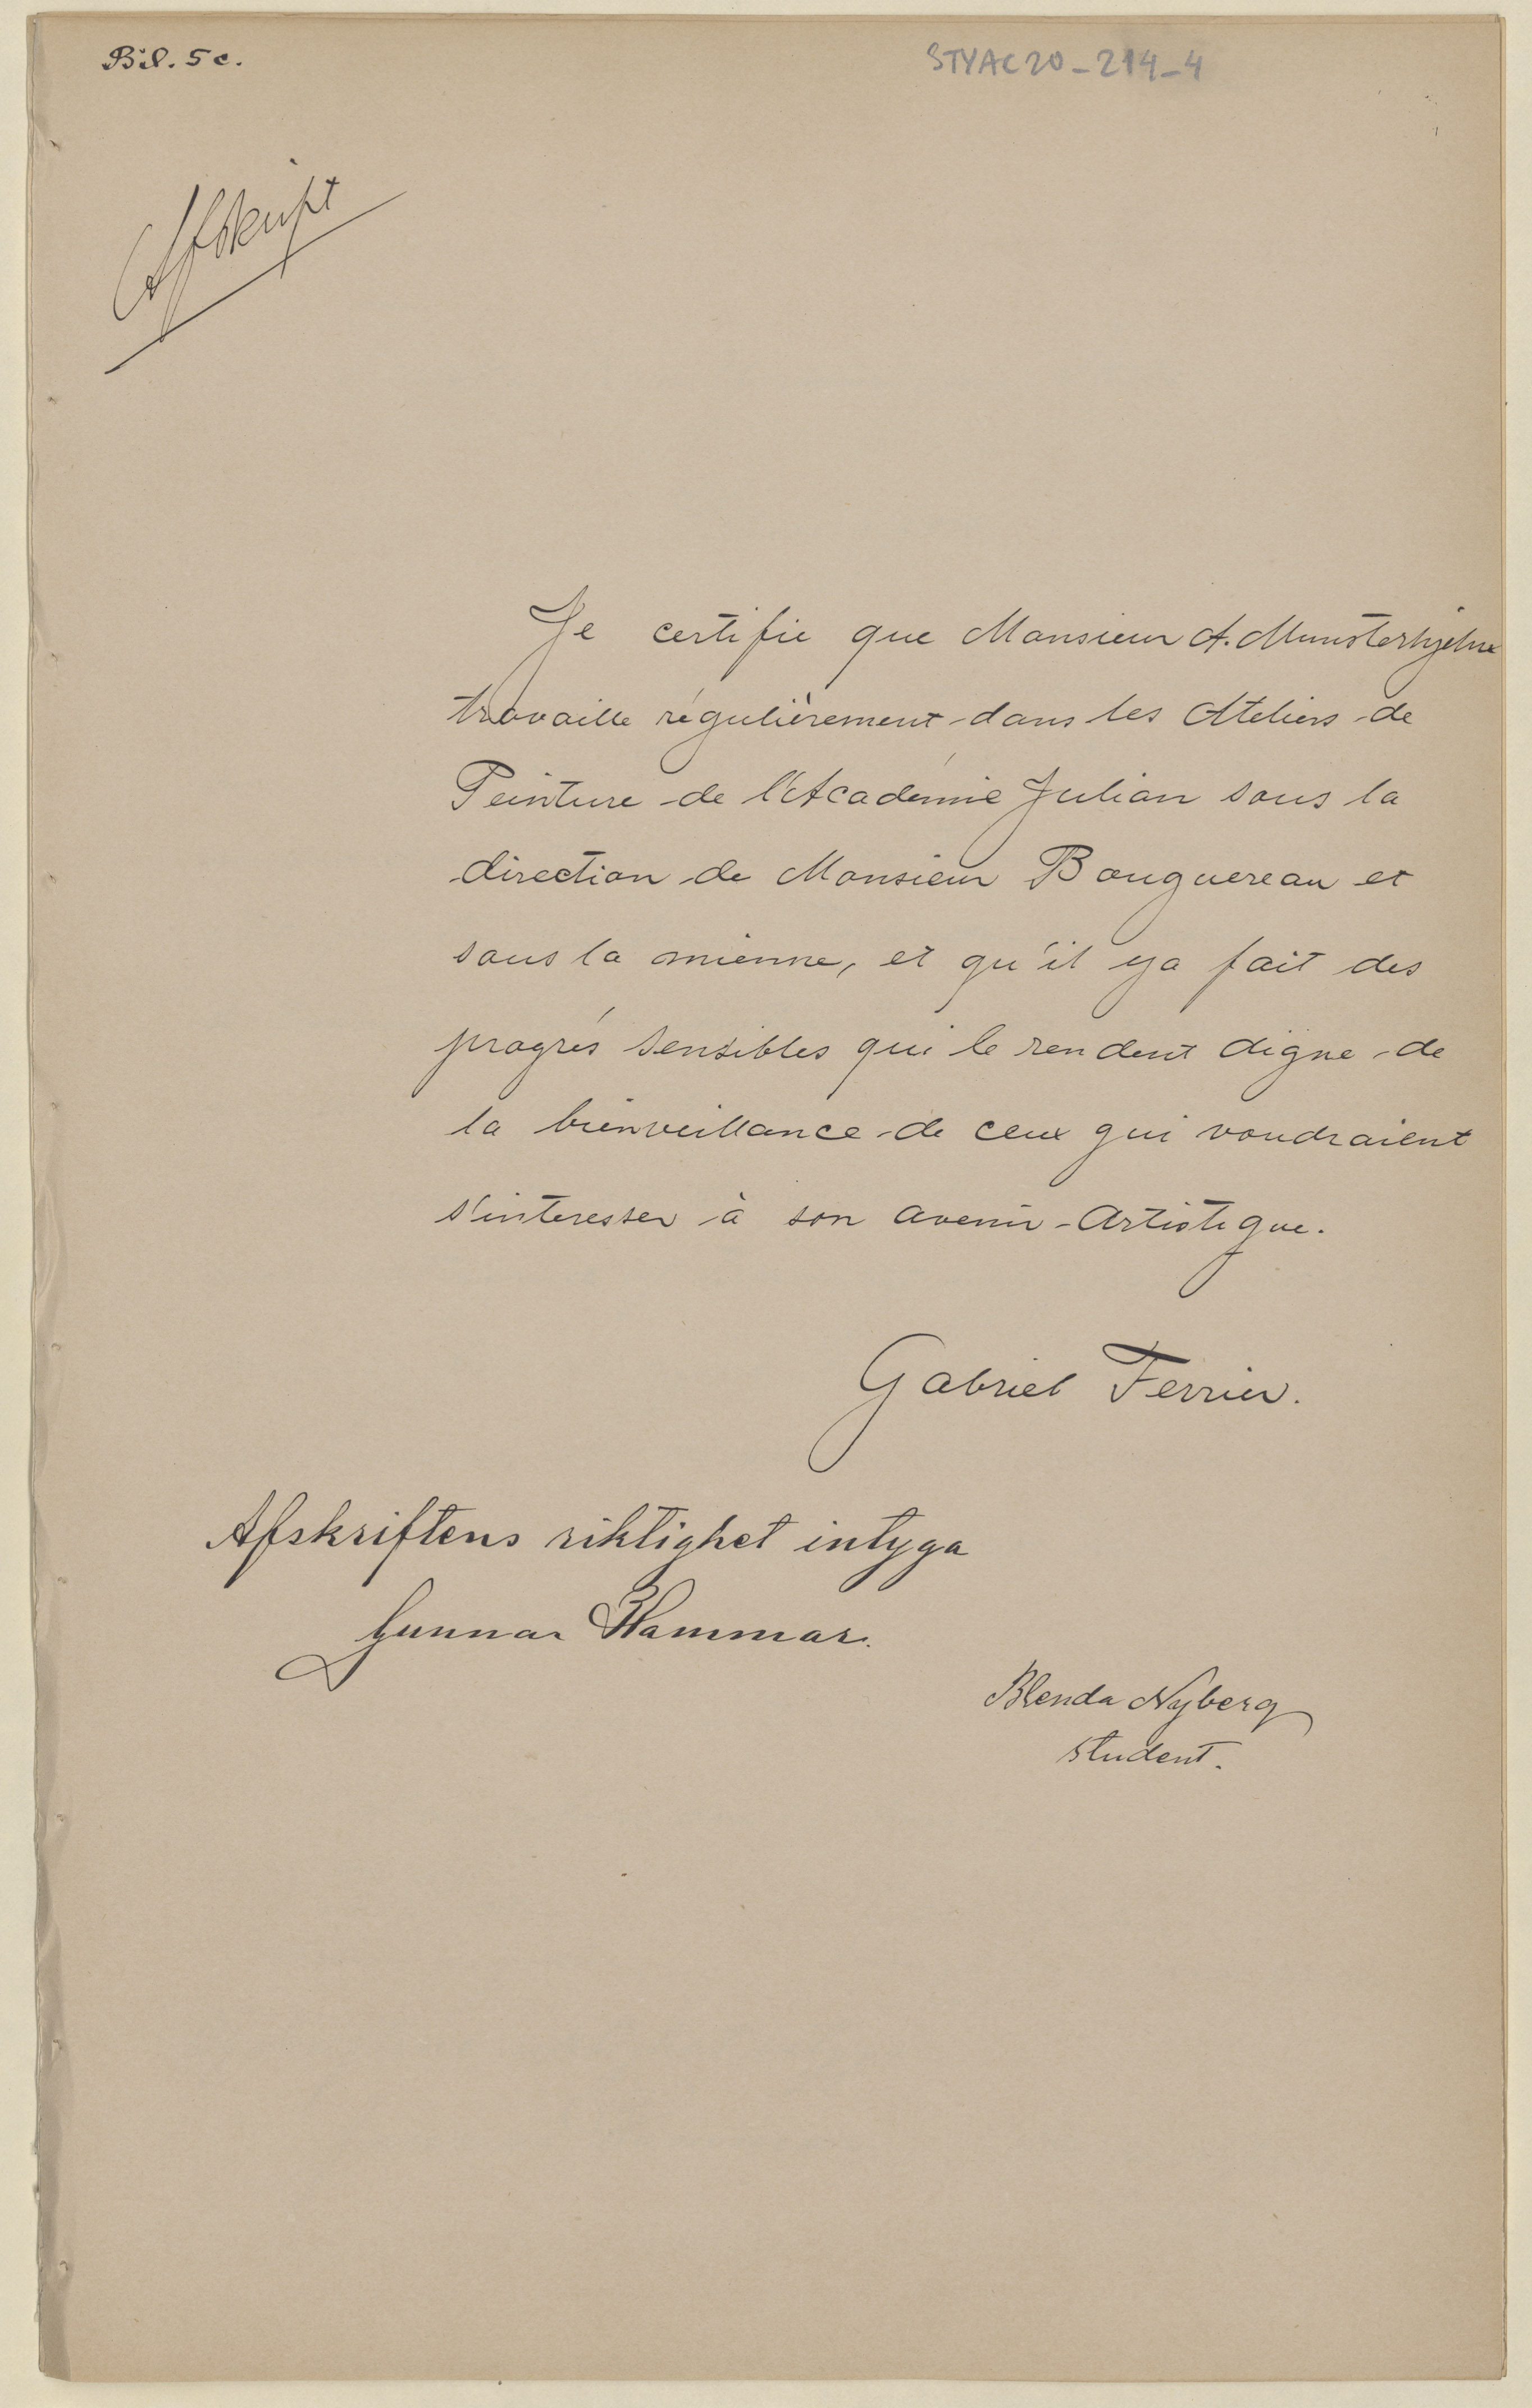 Bil. 5 c.
STYAC20-214-4
Afskrift
Je certifie que Monsieur A. Munsterhjelm
travaille régulièrement dans les Ateliers de
Peinture de l'Académie Julian sous la
direction de Monsieur Bouguereau et
sous la mienne, et qu'il y a fait des
progrés sensibles qui le rendent digne de
la bienveillance de ceux qui voudraient
s'interesser à son avenir Artistique.
Gabriel Ferrier.
Afskriftens riktighet intyga
Gunnar Hammar.
Blenda Nyberg
student.